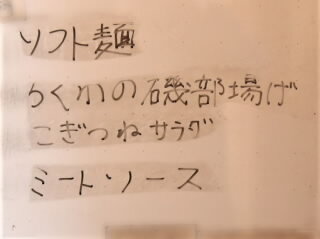 ソフト麺
ちくわの磯部揚げ
こぎつねサラダ
ミートソース